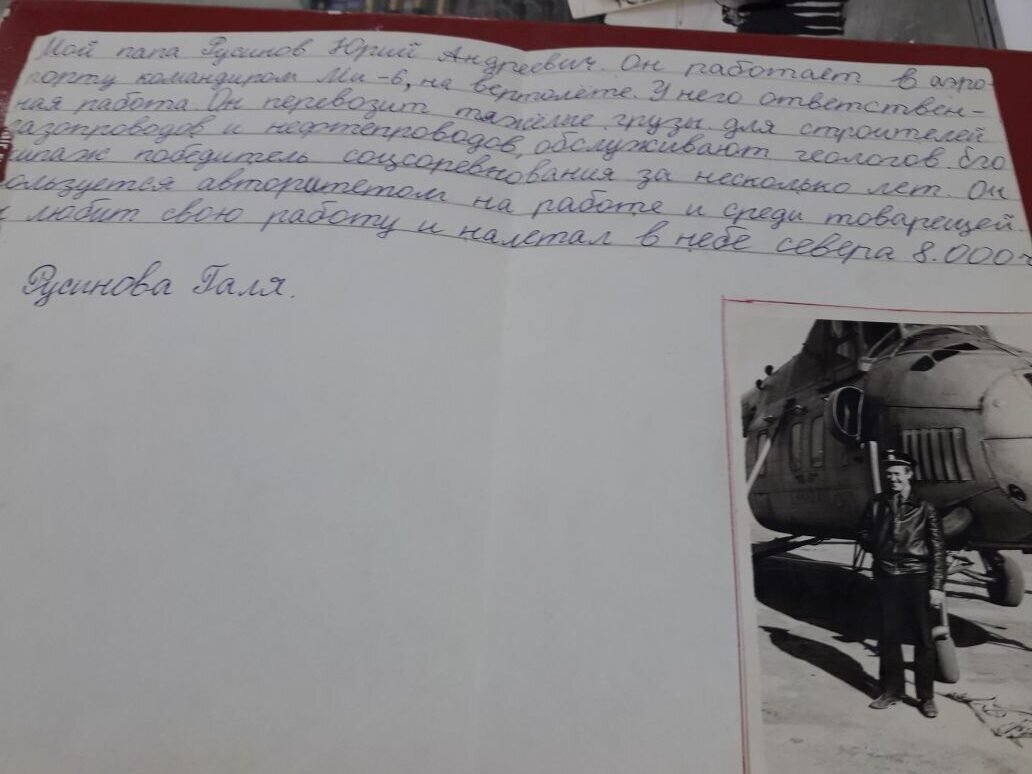 Мой папа Русинов Юрий Андреевич. Он работает в аэро-
порту командиром Ми-6, на вертолёте. У него ответствен-
ная работа. Он перевозит тяжёлые грузы для строителей
газопроводов и нефтепроводов, обслуживают геологов. Его
ипаж победитель соцсоревнования за несколько лет. Он
ользуется авторитетом на работе и среди товарещей.
любит свою работу и налетал в небе севера 8.000 ч
Русинова Галя.